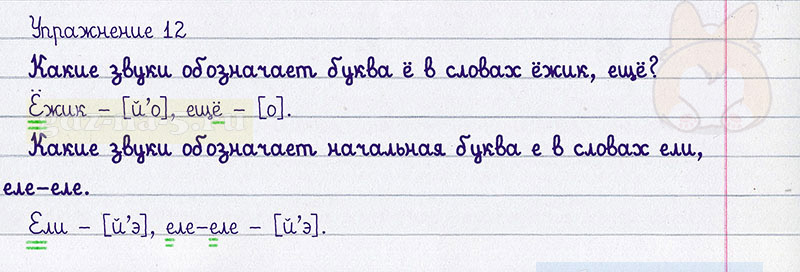 Упражнение 12
Какие звуки обозначает буква ё в словах ёжик, ещё?
Ёжик – [й’о], ещё – [о].
Какие звуки обозначает начальная буква е в словах ели,
еле-еле.
Ели – [й’э], еле-еле – [й’э].